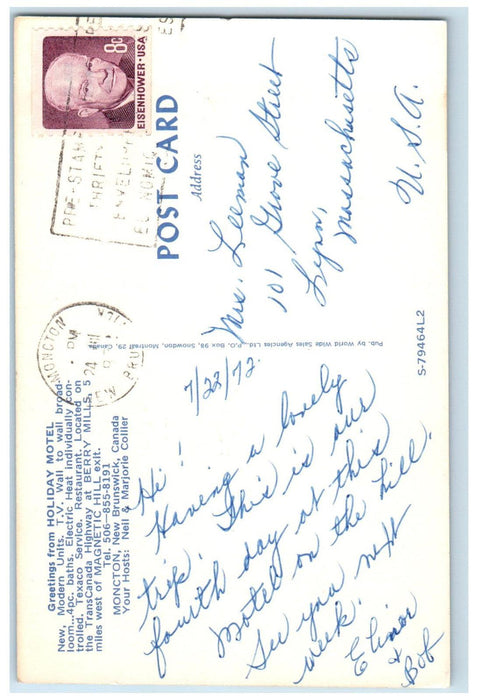 Greetings from HOLIDAY MOTEL
New, Modern Units. T.V. Wall to wall broad-
loom...4pc. baths. Electric Heat individually con-
trolled. exaco Service. Restaurant. Located on
the TransCanada Highway at BERRY MILLS, 5
miles west of MAGNETIC HILL exit.
Tel. 506-855-8191
MONCTON, New Brunswick, Canada
Your Hosts: Neil & Marjorie Collier
7/22/72
Hi!
Having a lovely
trip. This is our
fourth day at this
Motel on the hill.
See you next
week.
Elinor
&
Bob
Pub. by World Wide Sales Agencies Ltd., P.O. Box 93, Snowdon, Montreal 29, Canada.
MONCTON
PM
24
PRE-STAMPED
THRIFTY
ENVELOPES
ECONOMIC
8c
EISENHOWER·USA
POST CARD
Address
Mrs. Leeman
101 Grove Street
Lynn,
Massachusetts
U.S.A.
S-79464L2